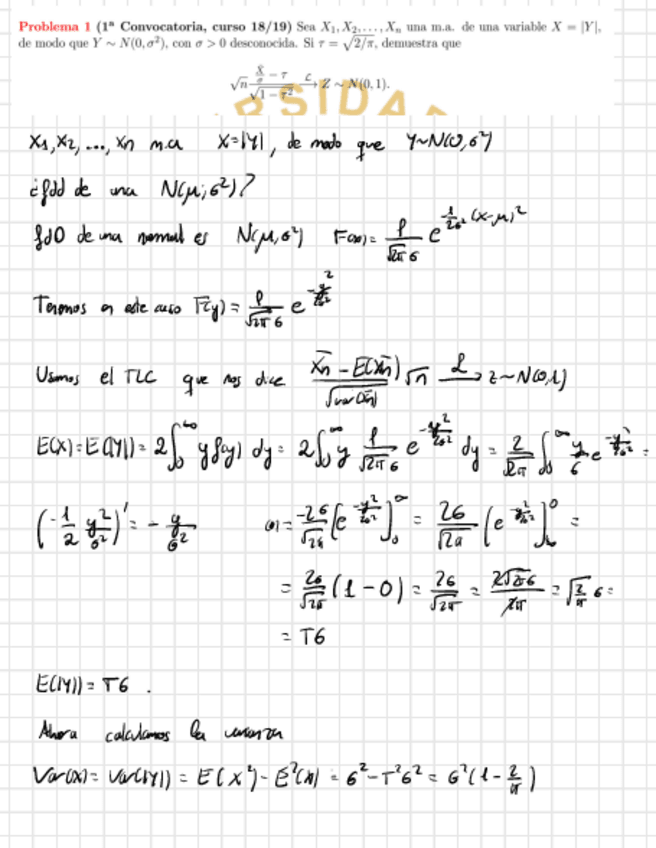 Problema 1 (1ª Convocatoria, curso 18/19) Sea X₁, X₂, ..., Xₙ una m.a. de una variable X = |Y|,
de modo que Y ~ N(0, σ²), con σ > 0 desconocida. Si τ = √(2/π), demuestra que
√n (X̄/σ − τ)/√(1 − τ²) →^L Z ~ N(0, 1).
RSIDA
X₁, X₂, ..., Xn m.a X=|Y|, de modo que Y~N(0,σ²)
¿fdd de una N(μ;σ²)?
fdD de una normal es N(μ,σ²) F(x)= 1/(√2π σ) e^(-1/2σ² (x-μ)²)
Tenemos en este caso F(y)= 1/(√2π σ) e^(-y²/2σ²)
Usamos el TLC que nos dice (X̄n - E(X̄n))/√var(X̄n) √n →^L z~N(0,1)
E(X)=E(|Y|)= 2∫₀^∞ y f(y) dy = 2∫₀^∞ y 1/(√2π σ) e^(-y²/2σ²) dy = 2/√2π ∫₀^∞ y/σ e^(-y²/2σ²) =
(-1/2 y²/σ²)' = - y/σ² (*)= -2σ/√2π [e^(-y²/2σ²)]₀^∞ = 2σ/√2π [e^(-y²/2σ²)]_∞^0 =
= 2σ/√2π (1-0) = 2σ/√2π = 2√2π σ/2π = √(2/π) σ =
= Tσ
E(|Y|) = Tσ .
Ahora calculamos la varianza
Var(x)= Var(|Y|) = E(X²)-E²(X) = σ²-T²σ² = σ²(1-2/π)